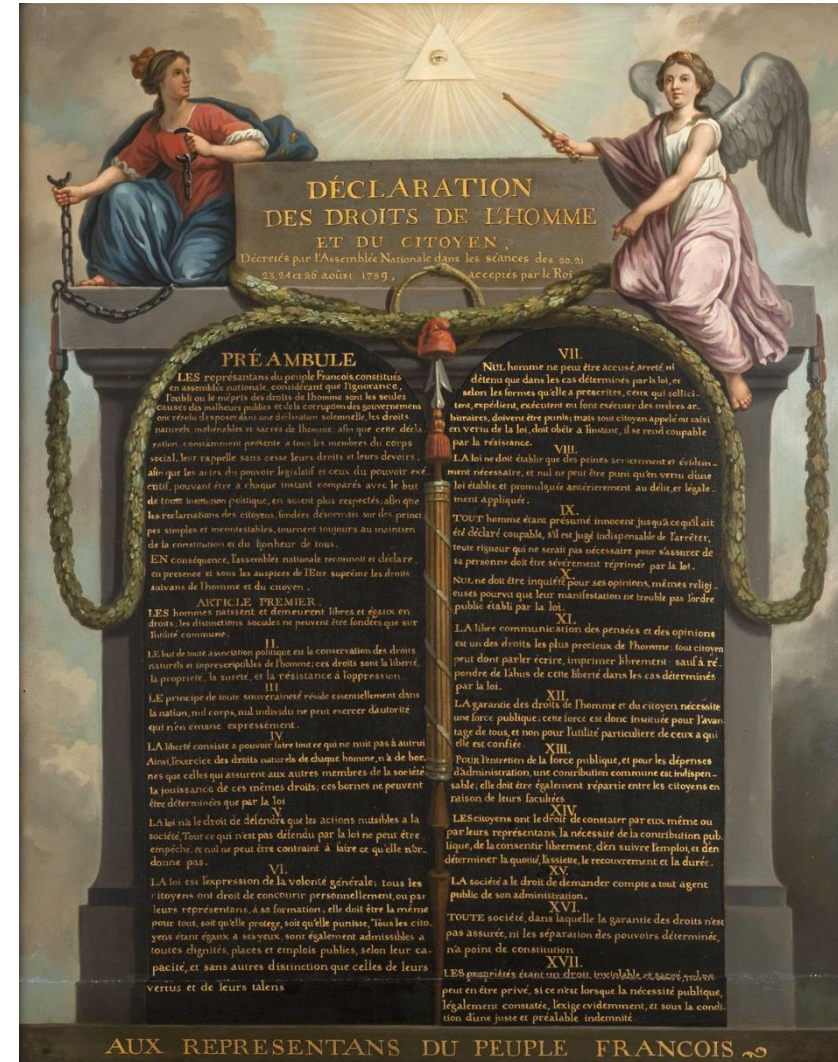 DÉCLARATION
DES DROITS DE L'HOMME
ET DU CITOYEN,
Décretés par l'Assemblée Nationale dans les séances des 20. 21
23, 24 et 26 août 1789, acceptés par le Roi
PRÉAMBULE
LES représantans du peuple Francois constitués
en assemblée nationale, considérant que l'ignorance,
l'oubli ou le mépris des droits de l'homme sont les seules
causes des malheurs publics et de la corruption des gouvernemens
ont résolu d'exposer dans une déclaration solemnelle, les droits
naturels, inaliénables et sacrés de l'homme: afin que cette décla
ration, constamment présente a tous les membres du corps
social, leur rappelle sans cesse leurs droits et leurs devoirs.
afin que les actes du pouvoir legislatif et ceux du pouvoir exé
cutif, pouvant être à chaque instant comparés avec le but
de toute institution politique, en soient plus respectés; afin que
les reclamations des citoyens, fondées désormais sur des princi
pes simples et incontestables, tournent toujours au maintien
de la constitution et du bonheur de tous.
EN conséquence, l'assemblée nationale reconnoit et déclare,
en presence et sous les auspices de l'Etre suprême les droits
suivans de l'homme et du citoyen.
ARTICLE PREMIER.
LES hommes naissent et demeurent libres et égaux en
droits, les distinctions sociales ne peuvent être fondées que sur
l'utilité commune.
II.
LE but de toute association politique est la conservation des droits
naturels et inprescripibles de l'homme; ces droits sont la liberté,
la propriete, la sureté, et la résistance à l'oppression.
III.
LE principe de toute souveraineté réside essentiellement dans
la nation, nul corps, nul individu ne peut exercer d'autorité
qui n'en emane expressément.
IV.
LA liberté consiste a pouvoir faire tout ce qui ne nuit pas à autrui
Ainsi, l'exercice des droits naturels de chaque homme, n'a de bor_
nes que celles qui assurent aux autres membres de la société
la jouissance de ces mêmes droits; ces bornes ne peuvent
être déterminées que par la loi
V.
LA loi n'a le droit de défendre que les actions nuisibles a la
société, Tout ce qui n'est pas défendu par la loi ne peut être
empêché, et nul ne peut être contraint à faire ce qu'elle n'or_
donne pas.
VI.
LA loi est l'expression de la volonté générale; tous les
citoyens ont droit de concourir personnellement, ou par
leurs réprésentans, à sa formation; elle doit être la même
pour tous, soit qu'elle protege, soit qu'elle punisse, Tous les cito_
yens étant égaux a ses yeux, sont également admissibles a
toutes dignités, places et emplois publics, selon leur ca_
pacité, et sans autres distinction que celles de leurs
vertus et de leurs talens
VII.
NUL homme ne peut être accusé, arreté ni
détenu que dans les cas déterminés par la loi, et
selon les formes qu'elle a prescrites, ceux qui sollici_
tent, expédient, exécutent ou font exécuter des ordres ar_
bitraires, doivent être punis; mais tout citoyen appelé ou saisi
en vertu de la loi, doit obéir a l'instant, il se rend coupable
par la résistance.
VIII.
LA loi ne doit établir que des peines strictement et évidem_
ment nécessaire, et nul ne peut être puni qu'en vertu d'une
loi établie et promulguée antérierement au délit, et légale_
ment appliquée.
IX.
TOUT homme étant présumé innocent jusqu'à ce qu'il ait
été déclaré coupable, s'il est jugé indispensable de l'arrêter,
toute rigueur qui ne serait pas nécessaire pour s'assurer de
sa personne doit être sévèrement réprimé par la loi.
X.
NUL ne doit être inquiété pour ses opinions, mêmes religi_
euses pourvu que leur manifestation ne trouble pas l'ordre
public établi par la loi.
XI.
LA libre communication des pensées et des opinions
est un des droits les plus precieux de l'homme: tout citoyen
peut dont parler écrire, imprimer librement: sauf à ré_
pondre de l'abus de cette liberté dans les cas déterminés
par la loi.
XII.
LA garantie des droits de l'homme et du citoyen nécessite
une force publique; cette force est donc instituée pour l'avan_
tage de tous, et non pour l'utilité particuliere de ceux a qui
elle est confiée.
XIII.
POUR l'entretien de la force publique, et pour les dépenses
d'administration, une contribution commune est indispen_
sable; elle doit être également répartie entre les citoyens en
raison de leurs facultées
XIV.
LES citoyens ont le droit de constater par eux même ou
par leurs représentans, la nécessité de la contribution pub_
lique, de la consentir librement, d'en suivre l'emploi, et d'en
déterminer la quotité, l'assiette, le recouvrement et la durée.
XV.
LA société a le droit de demander compte a tout agent
public de son administration.
XVI.
TOUTE société, dans laquelle la garantie des droits n'est
pas assurée, ni les séparation des pouvoirs déterminée,
n'a point de constitution
XVII.
LES propriétés étant un droit inviolable et sacré, nul ne
peut en être privé, si ce n'est lorsque la nécessité publique,
légalement constatée, l'exige evidemment, et sous la condi_
tion d'une juste et préalable indemnité.
AUX REPRESENTANS DU PEUPLE FRANCOIS